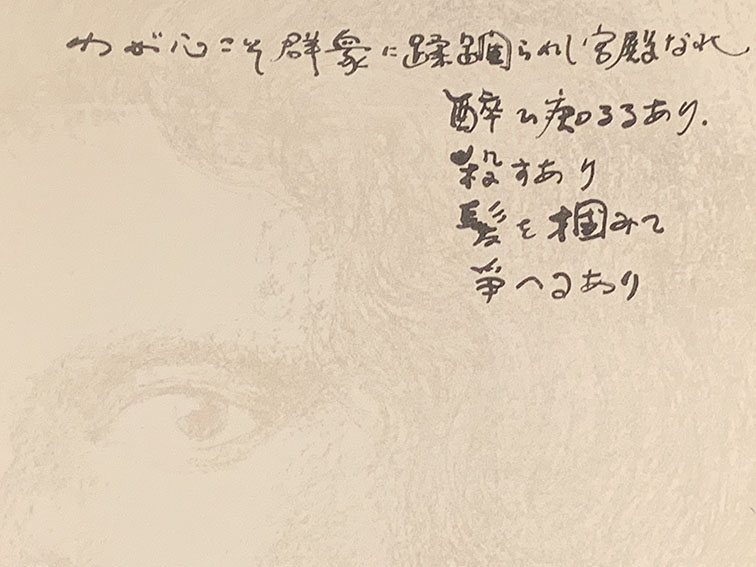 わが心こそ群衆に蹂躙られし宮殿なれ、
酔ひ痴るるあり.
殺すあり
髪を掴みて
争へるあり